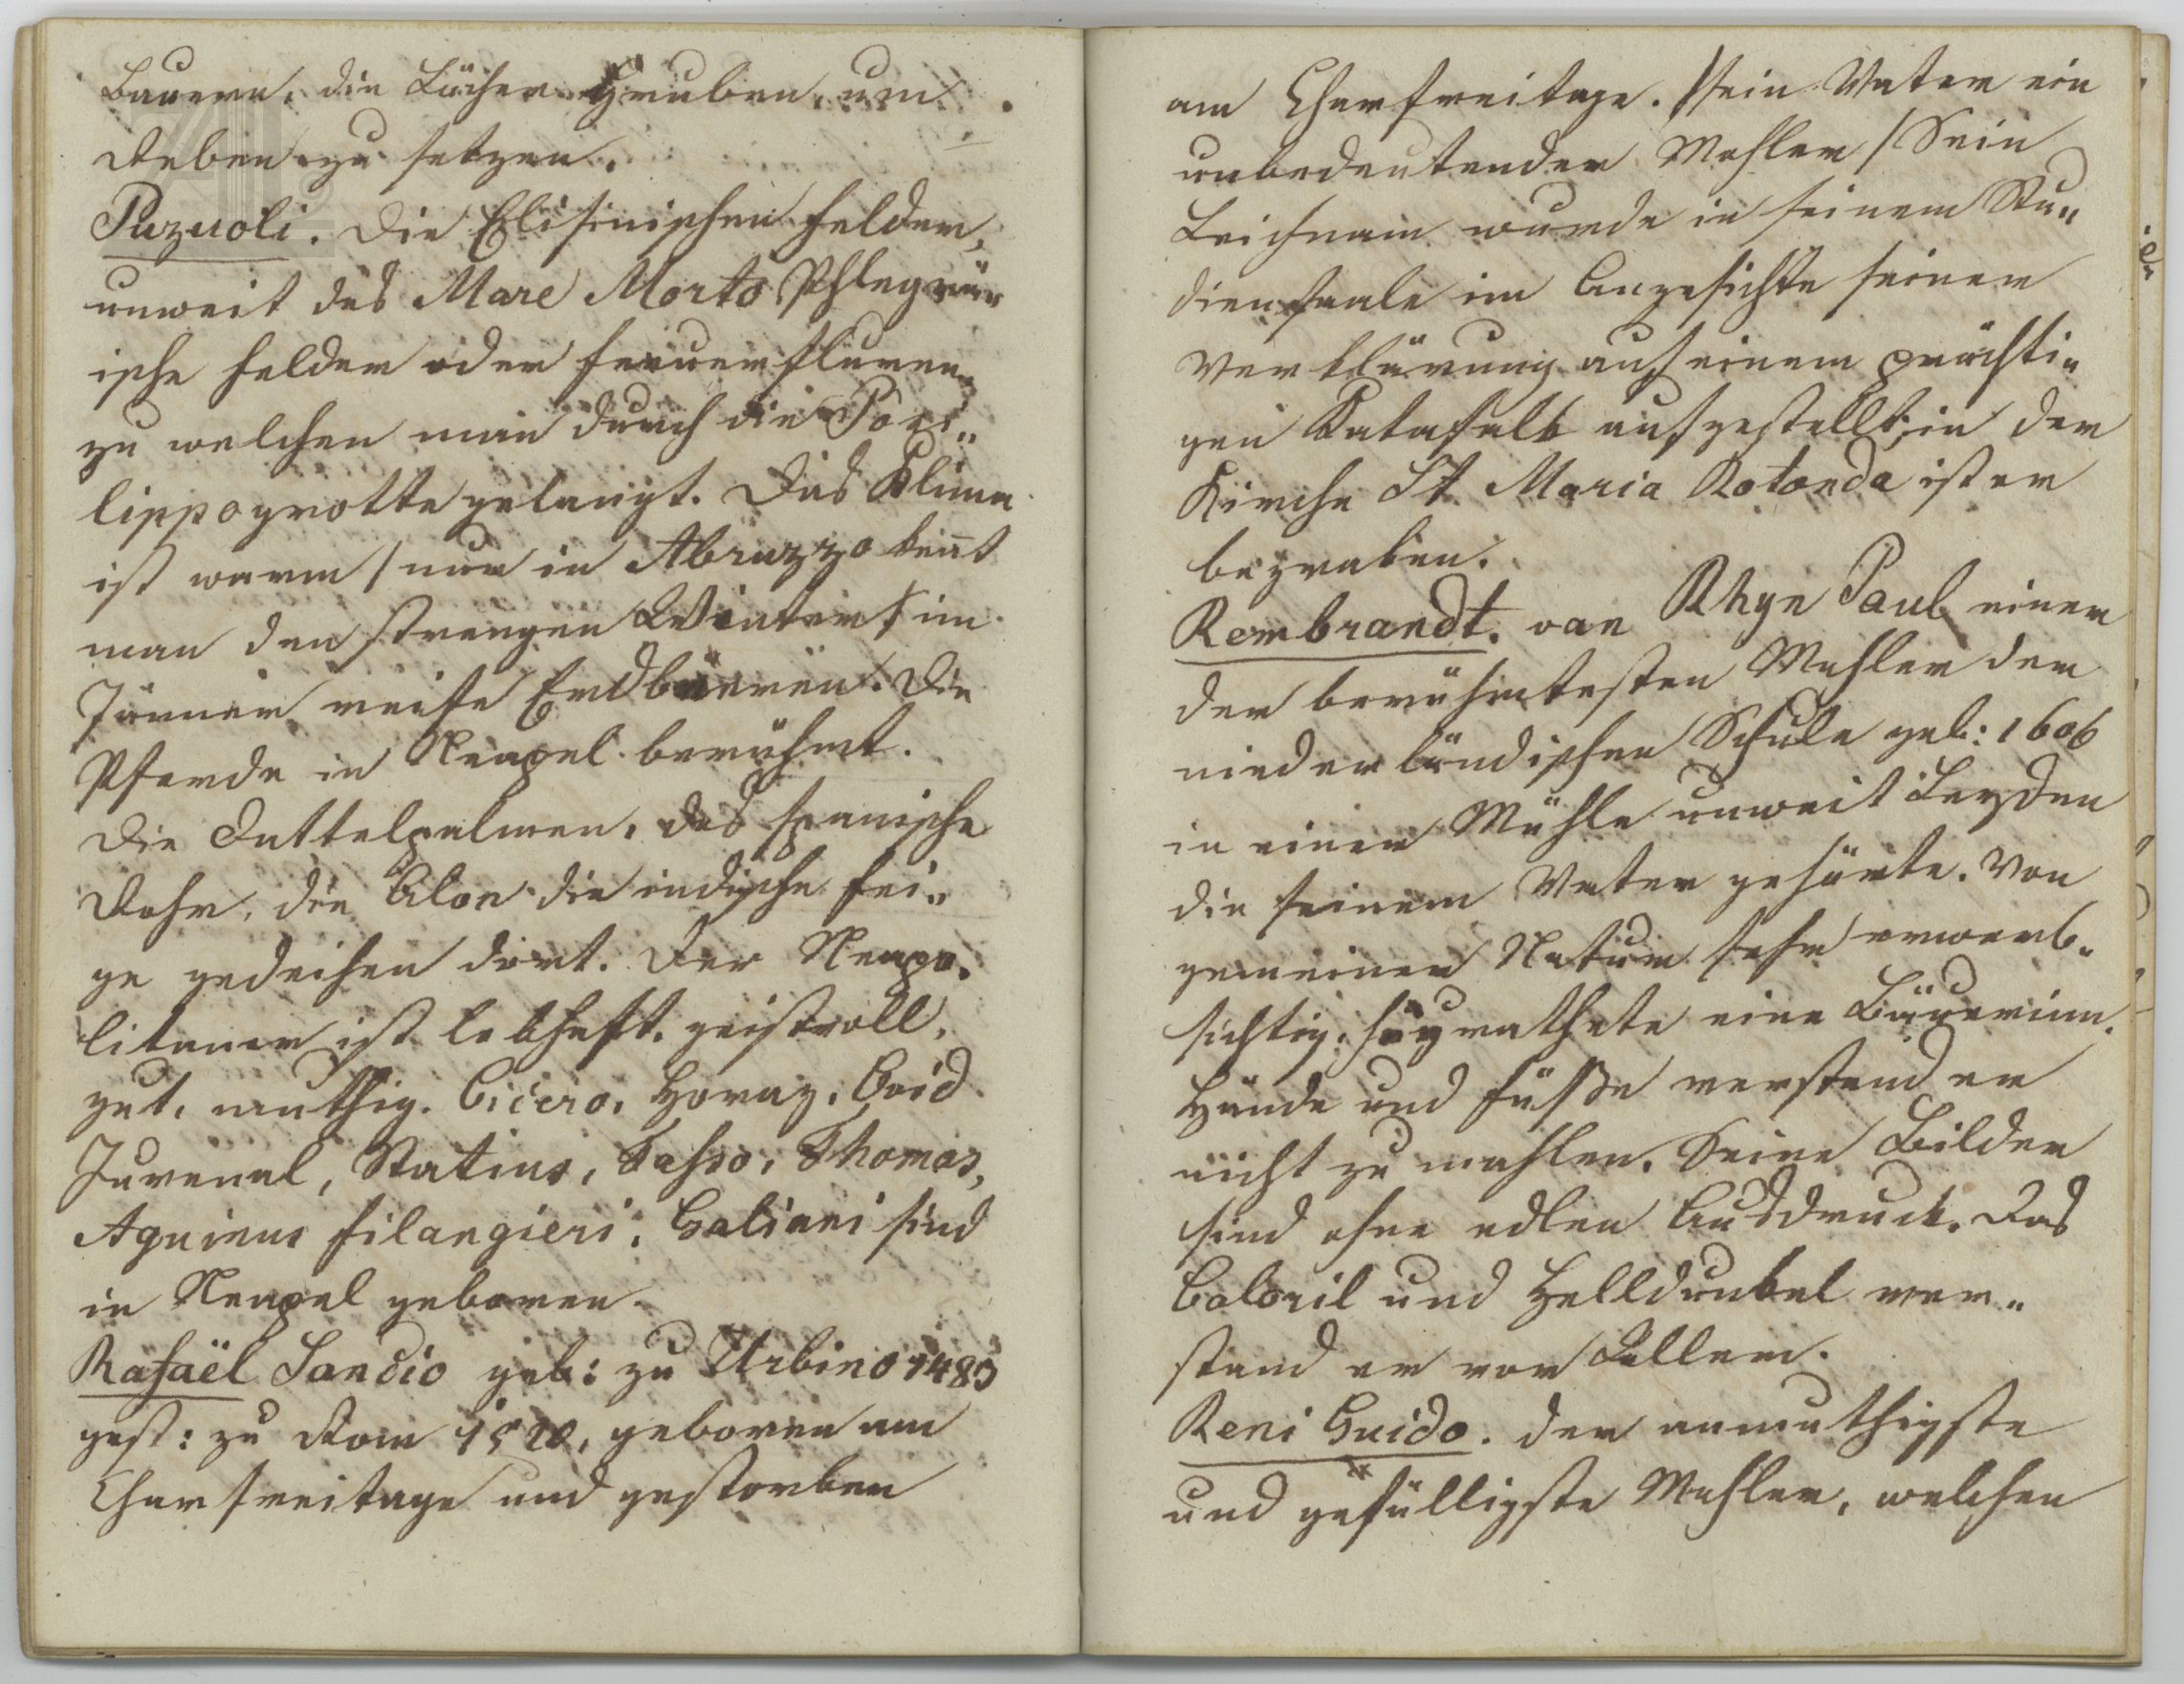 Bauern, die Löcher gruben, um
Reben zu setzen.
Puzuoli. Die Elisinischen Felder,
unweit des Mare Morto Phlegräi„
ische Felder oder Feuerfluren,
zu welchen man durch die Posi„
lippogrotte gelangt. Das Klima
ist warm / nur in Abruzzo ken̄t
man den strengen Winter / im
Jänner reife Erdbeeren. Die
Pferde in Neapel berühmt.
Die Dattelpalmen, das spanische
Rohr, die Aloe die indische Fei„
ge gedeihen dort. Der Neapo„
litaner ist lebhaft, geistvoll,
gut, muthig. Cicero, Horaz, Ovid
Juvenal, Statius, Tasso, Thomas,
Aquinus Filangieri, Galiani sind
in Neapel geboren.
Rafaël Sancio geb: zu Urbino 1483
gest: zu Rom 1520, geboren am
Charfreitage und gestorben
am Charfreitage. / sein Vater ein
unbedeutender Mahler / Sein
Leichnam wurde in seinem Stu„
diensaale im Angesichte seiner
Verklärung auf einem prächti„
gen Katafalk aufgestellt; in der
Kirche St. Maria Rotonda ist er
begraben.
Rembrandt. van Rhyn Paul einer
der berühmtesten Mahler der
niederländischen Schule geb: 1606
in einer Mühle unweit Leyden
die seinem Vater gehörte. Von
gemeiner Natur sehr erwerb„
süchtig, heyrathete eine Bäuerinn.
Hände und Füße verstand er
nicht zu mahlen. Seine Bilder
sind ohne edlen Ausdruck. Das
Colorit und Helldunkel ver„
stand er vor Allem.
Reni Guido. der anmuthigste
und gefälligste Mahler, welchen